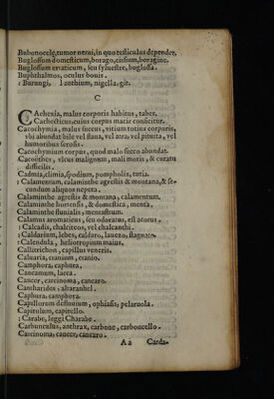 Bubonocele, tumor notai, in quo testiculus dependet.
Buglossum domesticum, borago, cissium, boragine.
Buglossum erraticum, seu syluestre, buglossa.
Buphthalmos, oculus bouis.
: Barungi, Ianthium, nigella, git.
C
CAchexia, malus corporis habitus, tabes.
Cachecticus, cuius corpus macie conficitur.
Cacochymia, malus succus, vitium totius corporis,
vbi abundat bile vel flaua, vel atra, vel pituita, vel
humoribus serosis.
Cacochymium corpus, quod malo succo abundat.
Cacoëthes, vlcus malignum, mali moris, & curatu
difficilis.
Cadmia, climia, spodium, pompholix, tutia.
: Calamentum, calaminthe agrestis & montana, & se-
cundum aliquos nepeta.
Calaminthe agrestis & montana, calamentum.
Calaminthe hortensis, & domestica, menta.
Calaminthe fluuialis, mentastrum.
Calamus aromaticus, seu odoratus, est acorus.
: Calcadis, chalciteos, vel chalcanthi.
: Caldarium, lebes, caldaro, lauezo, stagnato.
: Calendula, heliotropium maius.
Callitrichon, capillus veneris.
Caluaria, cranium, cranio.
Camphora, caphura.
Cancamum, lacca.
Cancer, carcinoma, cancaro.
Cantharides: alharanhel.
Caphura. camphora.
Capillorum defluuium, ophiasis; pelaruola.
Capitulum, capitello.
: Carabe, leggi Charabe.
Carbunculus, anthrax, carbone, carboncello.
Carcinoma, cancer, cancaro.
Aa Carda-